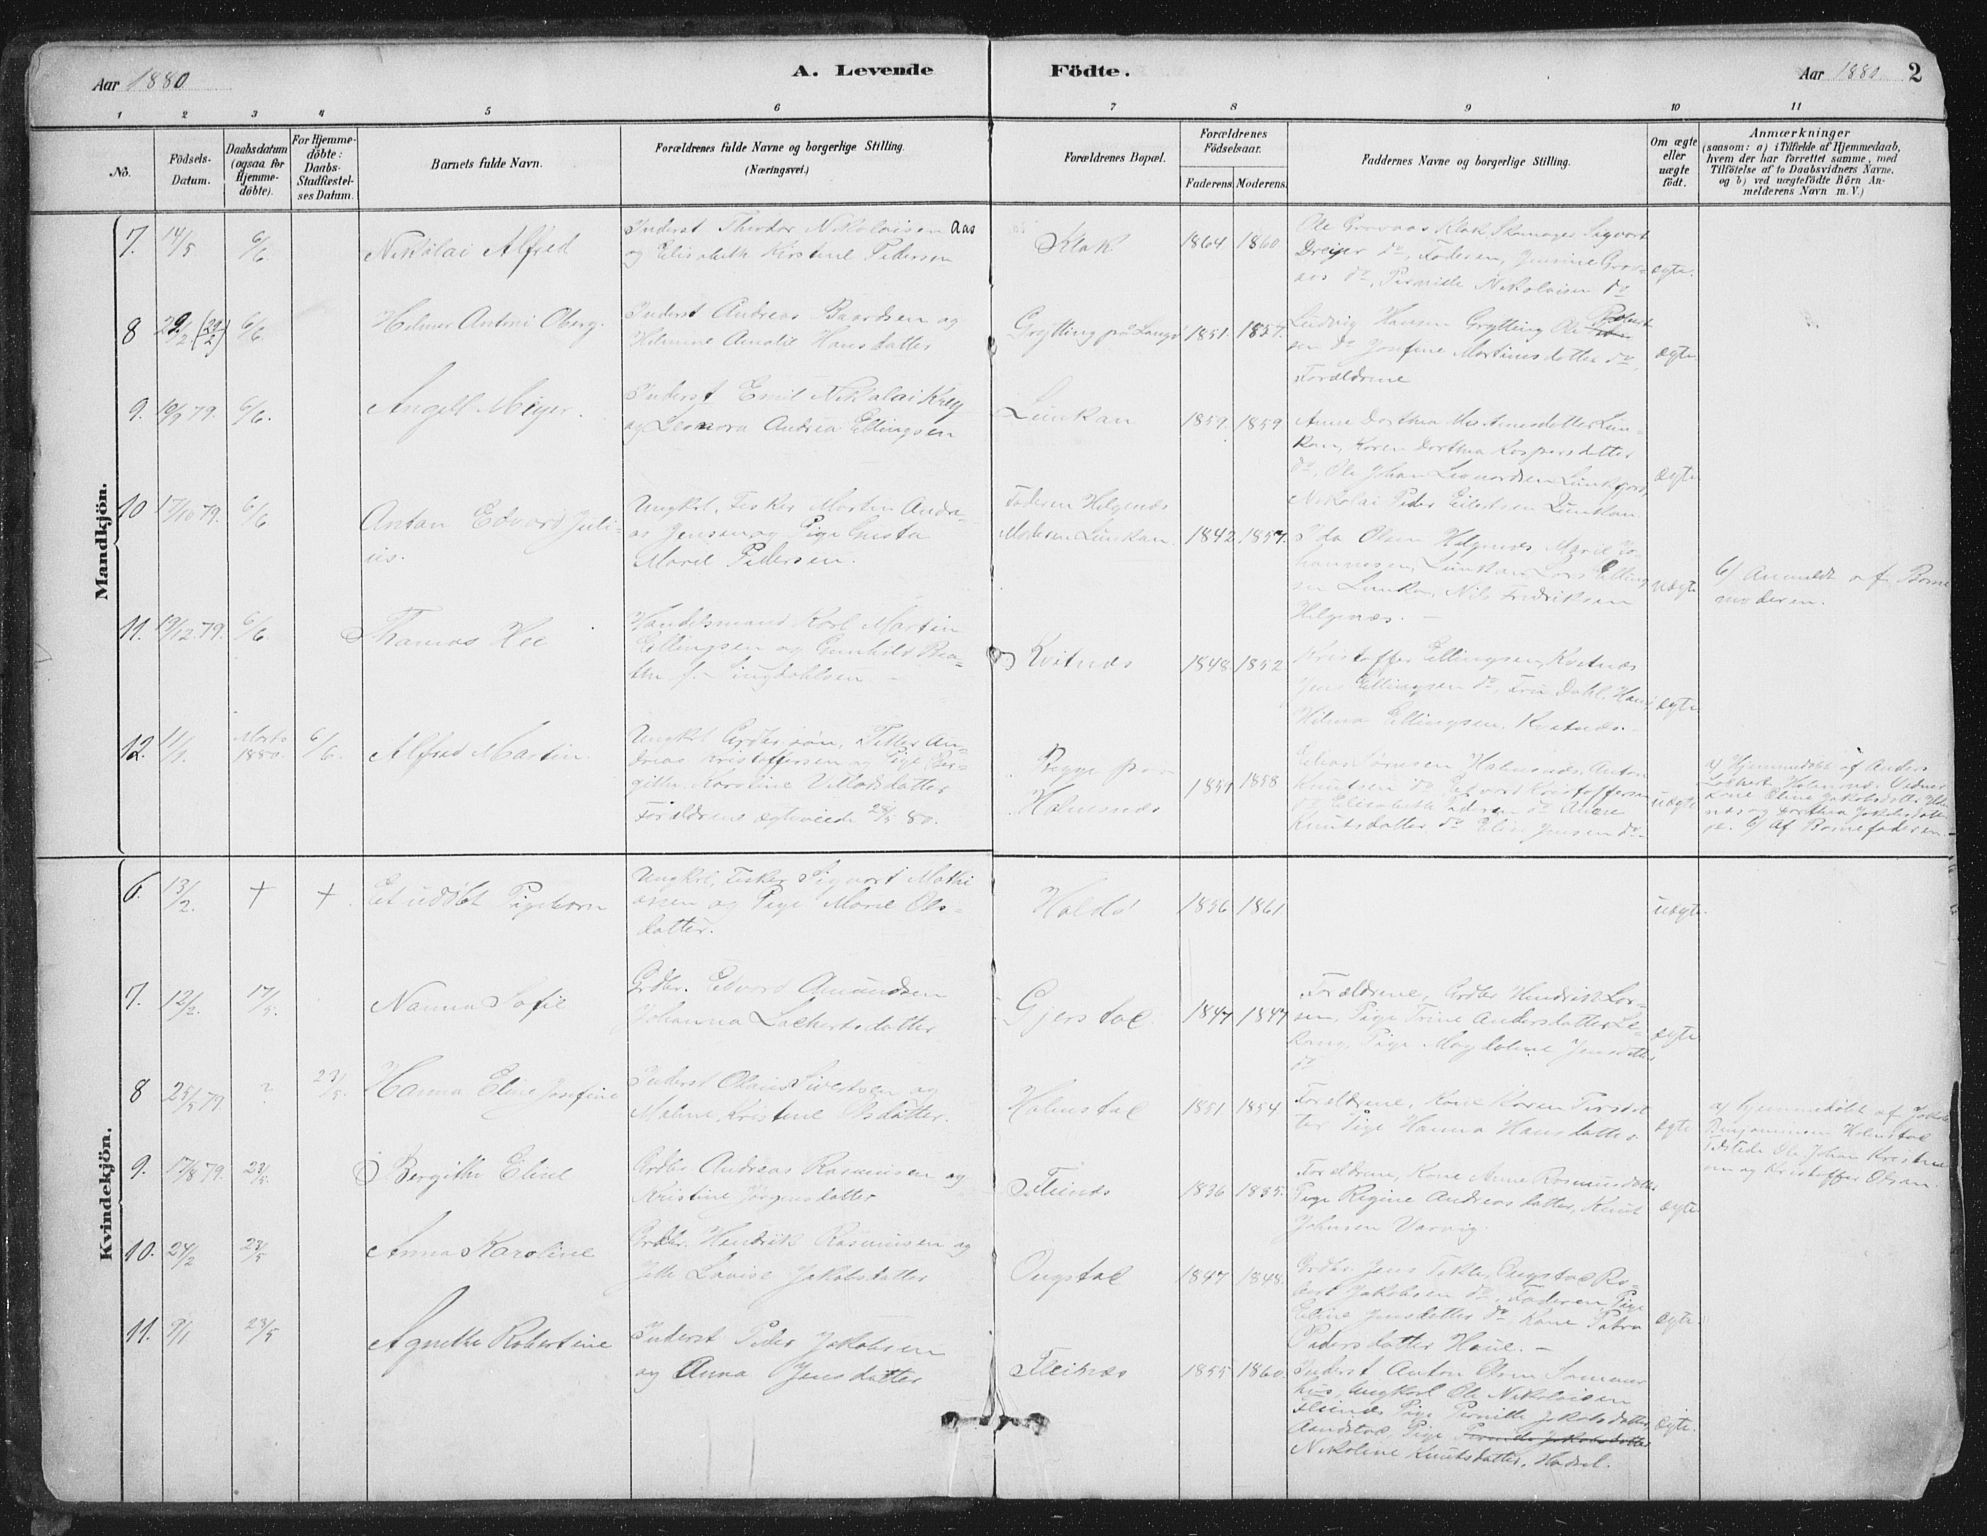 Aar 1880
A. Levende Födte.
Aar 1880 2
1 2 3 4 5 6 7 8 9 10 11
No.
Födsels-
Datum.
Daabsdatum
(ogsaa for
Hjemme-
döbte).
For Hjemme-
döbte:
Daabs-
Stadfæstel-
ses Datum.
Barnets fulde Navn.
Forældrenes fulde Navne og borgerlige Stilling.
(Næringsvei.)
Forældrenes Bopæl.
Forældrenes
Födselsaar.
Faderens. Moderens.
Faddernes Navne og borgerlige Stilling.
Om ægte
eller
uægte
födt.
Anmærkninger
(saasom: a) i Tilfælde af Hjemmedaab,
hvem der har forrettet samme, med
Tilföielse af to Daabsvidners Navne,
og b) ved uægtefödte Börn An-
melderens Navn m. V.)
Mandkjön.
7. 14/5 6/6
Nikolai Alfred
Inderst Theodor Nikolaisen Aas
og Elisabeth Kirstine Pedersen
Klak
1864 1860
Dreijer do, Faderen,
do, Pernille Nikolaisen do
ægte.
8 6/6
Hilmar Antoni Oberg.
Inderst Andreas Baardsen og
Hilmine Amalie Hansdatter
Grytting på Langö
1851. 1857.
Ludvig Hansen Grytting
sen do Josefine Martinesdatter do,
Forældrene
ægte
9. 10/9 79. 6/6.
Angell Meyer.
Inderst Emil Nikolai Krey
og Leonora Andrea Ellingsen
Lunkan
1859. 1859
Anne Dorthea
kan, Karen Dorthea Kaspersdatter
do, Ole Johan Leonardsen
Nikolai Peder Eilertsen Lunkan
ægte
10 17/10 79. 6/6
Anton Edvard Juli-
us.
Ungkrl, Fisker Morten Andre-
as Jensen og Pige Gusta
Marie Pedersen.
Faderen Helgenæs
Moderen Lunkan.
1842. 1857.
Ida Olsen Helgenæs Marie Jo-
hannesen, Lunkan, Lars Elling-
sen Lunkan, Nils Fredriksen
Helgenæs. -
uægte
b) Anmeldt af Barne-
moderen.
11. 19/12 79. 6/6
Thomas Hee
Handelsmand Karl Martin
Ellingsen og Gunhild Bea-
the f.
Kvitnæs
1848. 1852.
Kristoffer Ellingsen, Kvitnæs
Jens Ellingsen do, Fru Dahl,
Hilma Ellingsen. Kvitnæs.
ægte
12. 11/1. Marts
1880. 6/6.
Alfred Martin.
Ungkrl Grdbr.søn, Peter An-
dreas Kristoffersen og Pige Ber-
githe Karoline Villadsdatter
Forældrene ægteviede 28/5 80.
Begge paa
Holmsnæs
1857 1858
Elias Sörensen Holmsnæs, Anton
Knudsen do, Edvard Kristoffersen
do, Elisabeth Pedersen do Anne
Knudsdatter do Elise Jensen do
uægte
a) Hjemmedöbt af Anders
Lockert Holmsnæs Vidner
Kone Eline Jakobsdatter
b) Af Barnefaderen.
Kvindekjön.
6. 13/2. + +.
Et uddöbt Pigebarn
Ungkrl, Fisker Sigvart Mathi-
assen og Pige Marie Ols-
datter.
Haldö
1856 1861
uægte.
7. 12/2. 17/5.
Nanna Sofie
Grdbr. Edvard Amundsen
Johanna Lockertsdatter
Gjerstad.
1847 1847
Forældrene, Grdbr Hendrik Lar-
sen, Pige Trine Andersdatter Le-
kang, Pige Magdaline Jensdatter
do
ægte
8 25/5 79. ? 23/5.
Hanna Eline Josefine
Inderst Olaus Sivertsen og
Maline Kristine Olsdatter.
Holmstad
1851 1854
Forældrene, Kone Karen
ter Pige Hanna Hansdatter.
ægte
a) Hjemmedöbt af Jakob
Benjaminsen Holmstad
Tilstede Ole Johan Kristen-
sen og Kristoffer Olsen.
9. 17/8 79. 23/5.
Bergithe Eline
Grdbr Andreas Rasmusen og
Kristine Jörgensdatter
Fleinæs
1836 1835.
Forældrene, Kone Anne Rasmusdatter
Pige Regine Andreasdatter, Knud
Johnsen Varvig.
ægte
10. 24/2 23/5
Anna Karoline
Grdbr. Hendrik Rasmusen og
Jette Lovise Jakobsdatter
Ongstad
1847 1848.
Grdbr Jens Fikle, Ongstad Ro-
bert Jakobsen do, Faderen, Pige
Eline Jensdatter do, Kone Petra
Pedersdatter Haue. -
ægte.
11. 9/1 23/5
Agnethe Robertine
Inderst Peder Jakobsen
og Anna Jensdatter
Fleinæs
1855 1860.
Inderst Anton Olsen Sommer-
hus, Ungkarl Ole Nikolaisen
Fleinæs Pige Pernille Jakobsdatter
Aandstad, Pige Pernille Jakobsdatter
Nikoline Knudsdatter, Hadsel.
ægte.